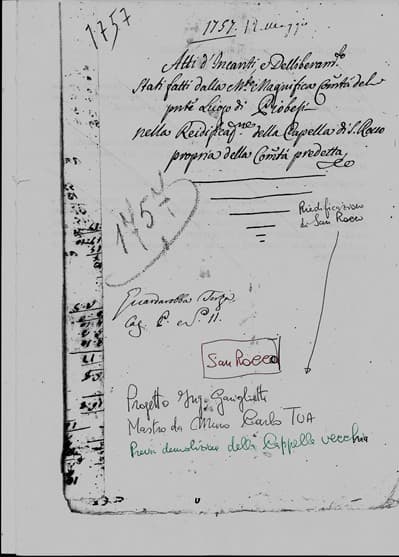 1757
1757. 12 Maggio
Atti d'Incanti, e Delliberam.to
Stati fatti dalla M.to Magnifica Com.tà del
pnte Luogo di Piobesi
nella Reidificaq.ne della Capella di S. Rocco
propria della Com.tà predetta
1757
Riedificazione
di San Rocco
Guardarobba Terza
San Rocco
Progetto Ing. Garigliatti
Mastro da Muro Carlo TUA
Previa demolizione della Cappella vecchia